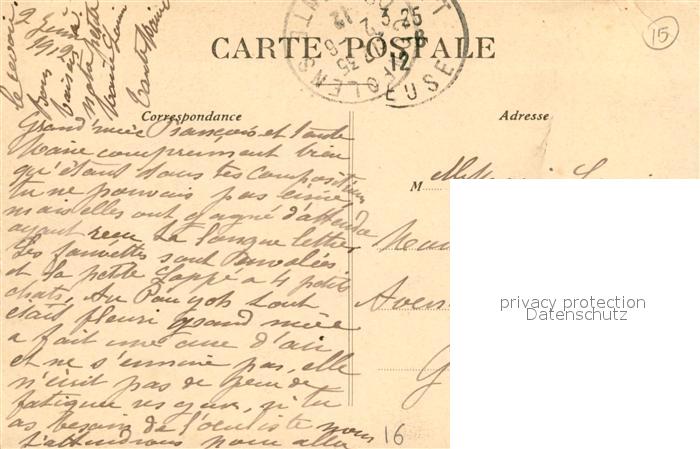 2 Juin
1912
Bons
baisers de
notre petite
Marie Louise
Tante Marie
15
CARTE POSTALE
3 25
12
EUSE
Correspondance
Adresse
Grand mère François et tante
Marie comprennent bien
qu'étant dans tes compositions
tu ne pouvais pas écrire
mais elles ont gagné d'attendre
ayant reçu ta longue lettre
Les fauvettes sont envolées
et la petite a 4 petits
chats, Au tout
était fleuri grand mère
a fait une cure d'air
et ne s'ennuie pas, elle
n'écrit pas de peur de
fatiguer ses yeux, si tu
as besoin de l'oculiste nous
t'attendrons pour aller
M
privacy protection
Datenschutz
16